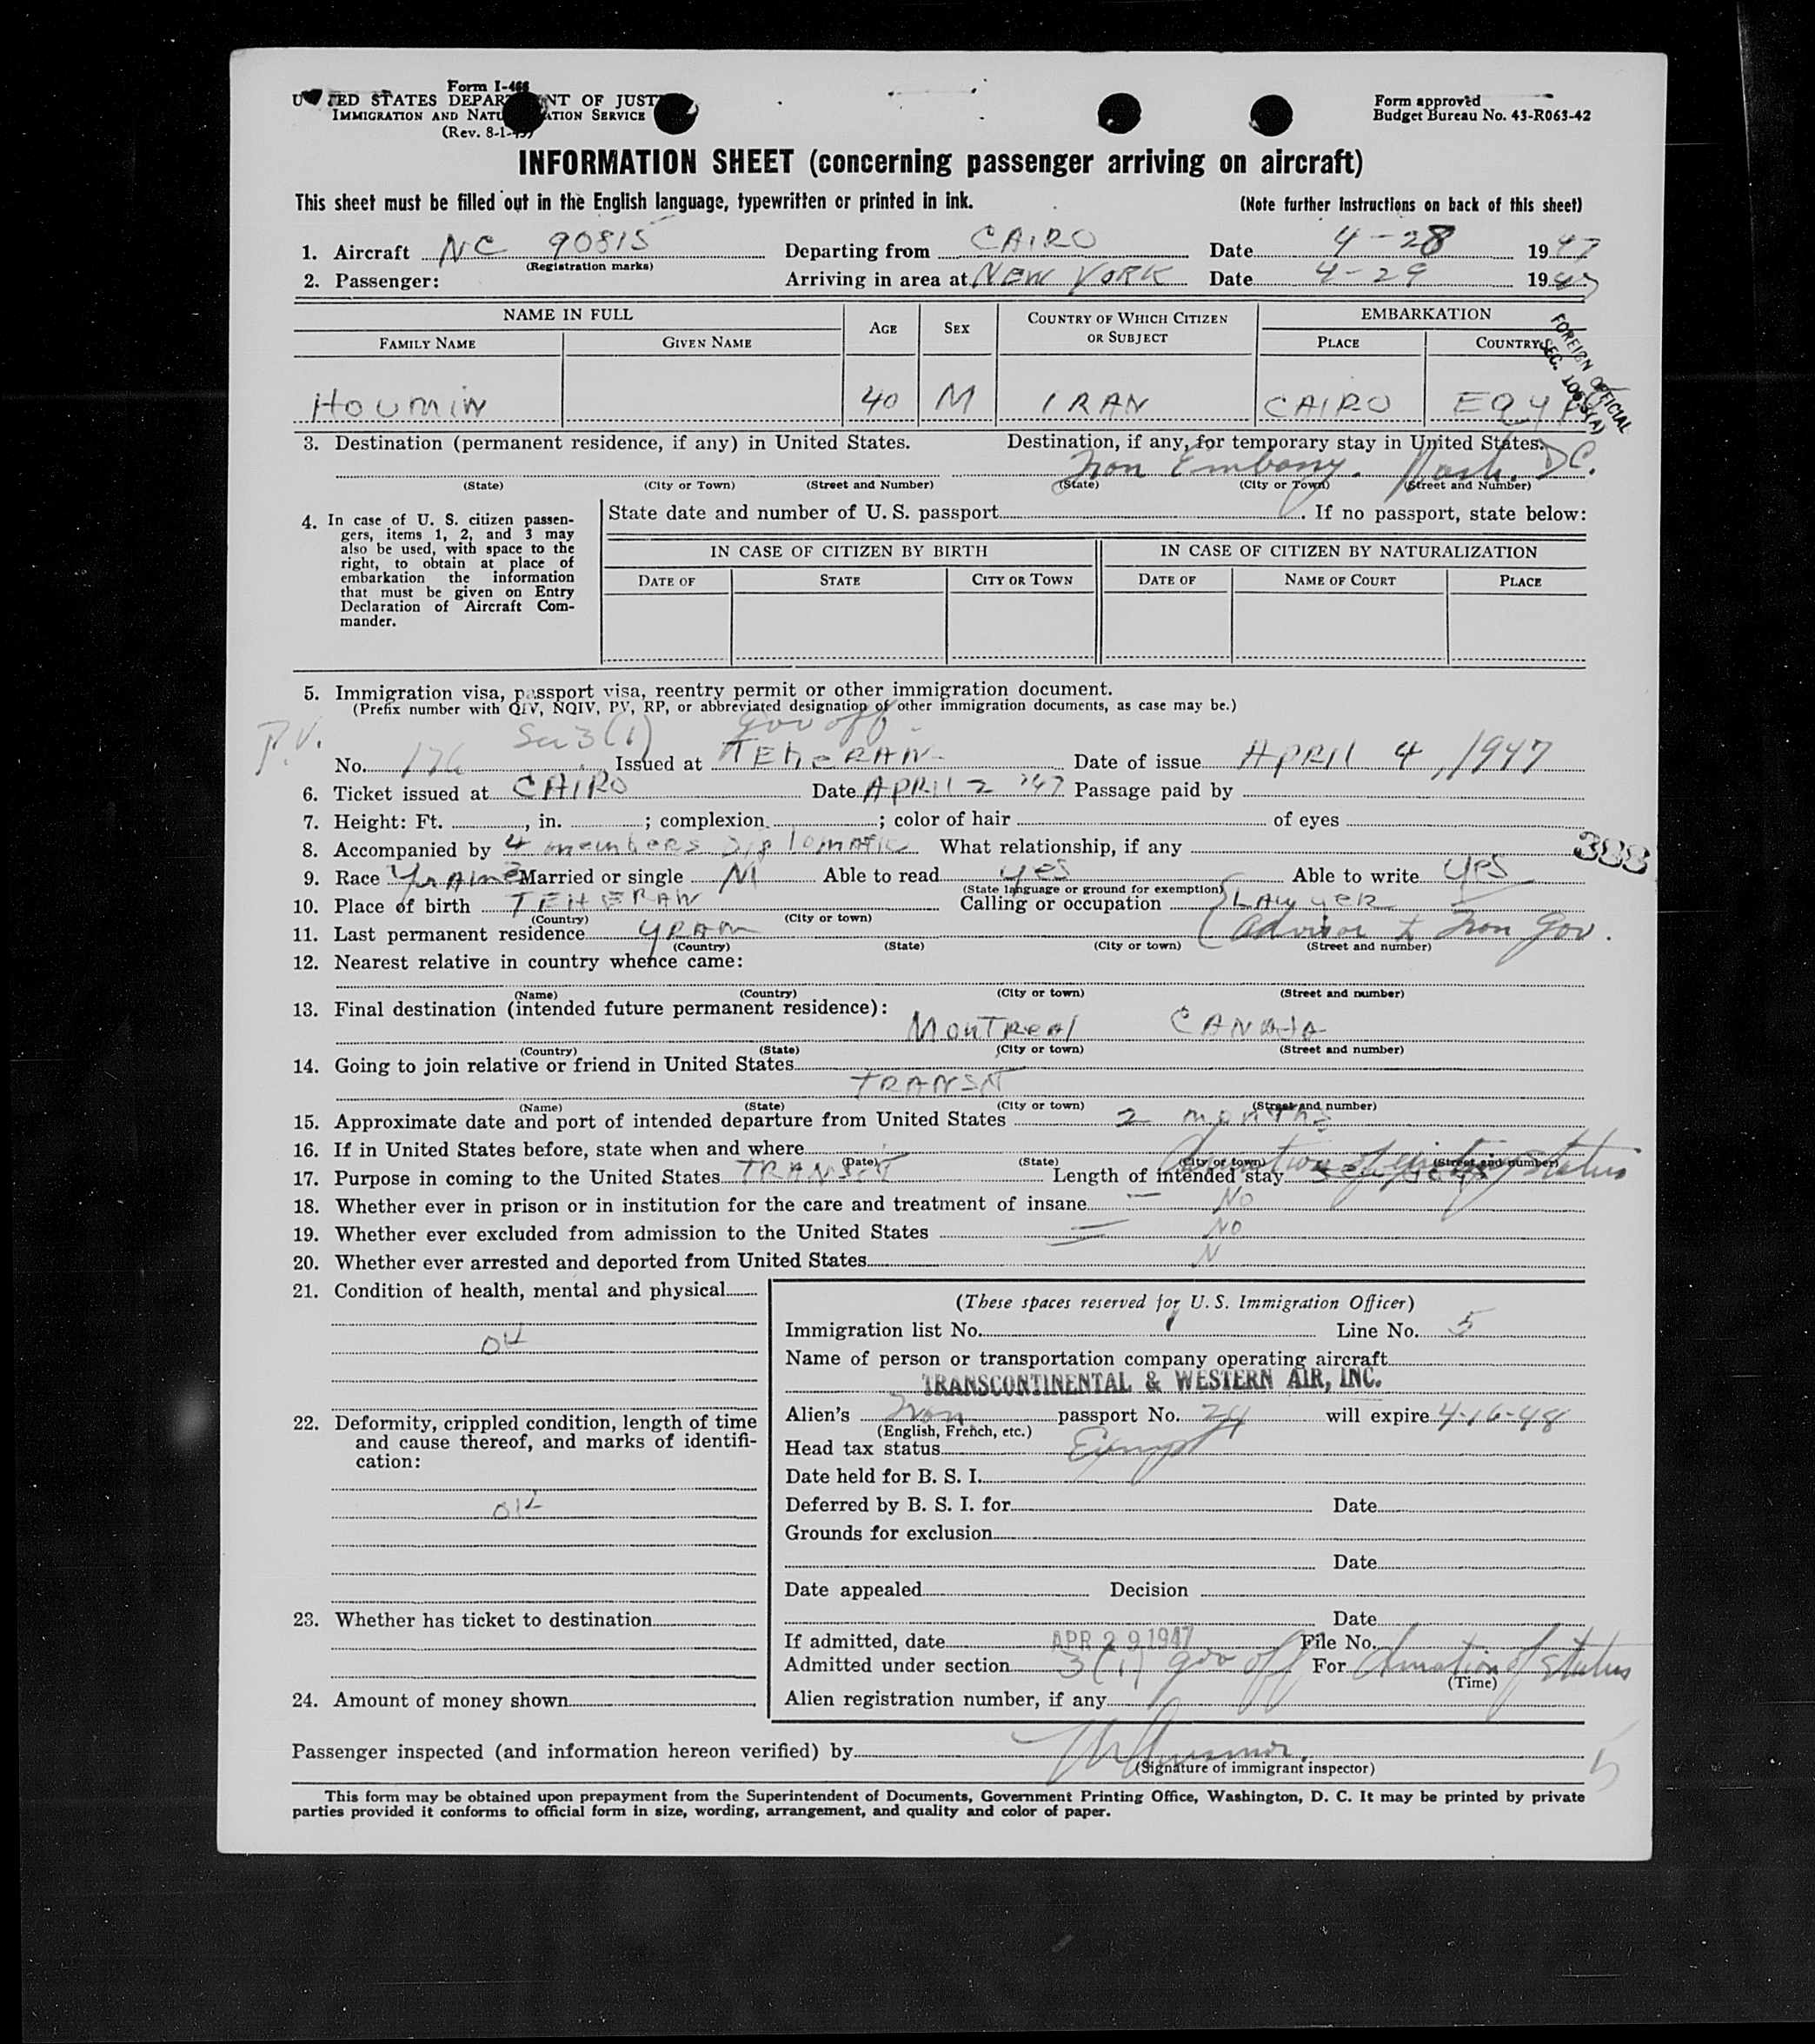 Form I-466
UNITED STATES DEPARTMENT OF JUSTICE
IMMIGRATION AND NATURALIZATION SERVICE
(Rev. 8-1-45)
Form approved
Budget Bureau No. 43-R063-42
INFORMATION SHEET (concerning passenger arriving on aircraft)
This sheet must be filled out in the English language, typewritten or printed in ink. (Note further instructions on back of this sheet)
1. Aircraft NC 90815 Departing from CAIRO Date 4-28 1947
(Registration marks)
2. Passenger: Arriving in area at NEW YORK Date 4-29 1947
NAME IN FULL AGE SEX COUNTRY OF WHICH CITIZEN OR SUBJECT EMBARKATION
FAMILY NAME GIVEN NAME PLACE COUNTRY
FOREIGN OFFICIAL
SEC. 1063(A)
HOUMIN 40 M IRAN CAIRO EQYPT
3. Destination (permanent residence, if any) in United States. Destination, if any, for temporary stay in United States.
Iran Embassy. Wash. DC.
(State) (City or Town) (Street and Number) (State) (City or Town) (Street and Number)
4. In case of U. S. citizen passen-
gers, items 1, 2, and 3 may
also be used, with space to the
right, to obtain at place of
embarkation the information
that must be given on Entry
Declaration of Aircraft Com-
mander.
State date and number of U. S. passport. If no passport, state below:
IN CASE OF CITIZEN BY BIRTH IN CASE OF CITIZEN BY NATURALIZATION
DATE OF STATE CITY OR TOWN DATE OF NAME OF COURT PLACE
5. Immigration visa, passport visa, reentry permit or other immigration document.
(Prefix number with QIV, NQIV, PV, RP, or abbreviated designation of other immigration documents, as case may be.)
P.V. Sec 3(1) gov off.
No. 176 Issued at TEHERAN Date of issue APRIL 4, 1947
6. Ticket issued at CAIRO Date APRIL 2 '47 Passage paid by
7. Height: Ft. , in. ; complexion ; color of hair of eyes
8. Accompanied by 4 members Diplomatic What relationship, if any
388
9. Race Married or single M Able to read yes Able to write yes
(State language or ground for exemption)
10. Place of birth TEHERAN Calling or occupation LAWYER
(Country) (City or town)
11. Last permanent residence YRAN Advisor to Iran Gov.
(Country) (State) (City or town) (Street and number)
12. Nearest relative in country whence came:
(Name) (Country) (City or town) (Street and number)
13. Final destination (intended future permanent residence):
MONTREAL CANADA
(Country) (State) (City or town) (Street and number)
14. Going to join relative or friend in United States
TRANSIT
(Name) (State) (City or town) (Street and number)
15. Approximate date and port of intended departure from United States 2 months
16. If in United States before, state when and where
(Date) (State) (City or town) (Street and number)
17. Purpose in coming to the United States TRANSIT Length of intended stay Duration of status
18. Whether ever in prison or in institution for the care and treatment of insane NO
19. Whether ever excluded from admission to the United States NO
20. Whether ever arrested and deported from United States N
21. Condition of health, mental and physical
OK
22. Deformity, crippled condition, length of time
and cause thereof, and marks of identifi-
cation:
OK
23. Whether has ticket to destination
24. Amount of money shown
(These spaces reserved for U. S. Immigration Officer)
Immigration list No. 1 Line No. 5
Name of person or transportation company operating aircraft
TRANSCONTINENTAL & WESTERN AIR, INC.
Alien's Iran passport No. 24 will expire 4-16-48
(English, French, etc.)
Head tax status Exempt
Date held for B. S. I.
Deferred by B. S. I. for Date
Grounds for exclusion
Date
Date appealed Decision
Date
If admitted, date APR 29 1947 File No.
Admitted under section 3(1) gov off For duration of status
(Time)
Alien registration number, if any
Passenger inspected (and information hereon verified) by
(Signature of immigrant inspector)
5
This form may be obtained upon prepayment from the Superintendent of Documents, Government Printing Office, Washington, D. C. It may be printed by private
parties provided it conforms to official form in size, wording, arrangement, and quality and color of paper.